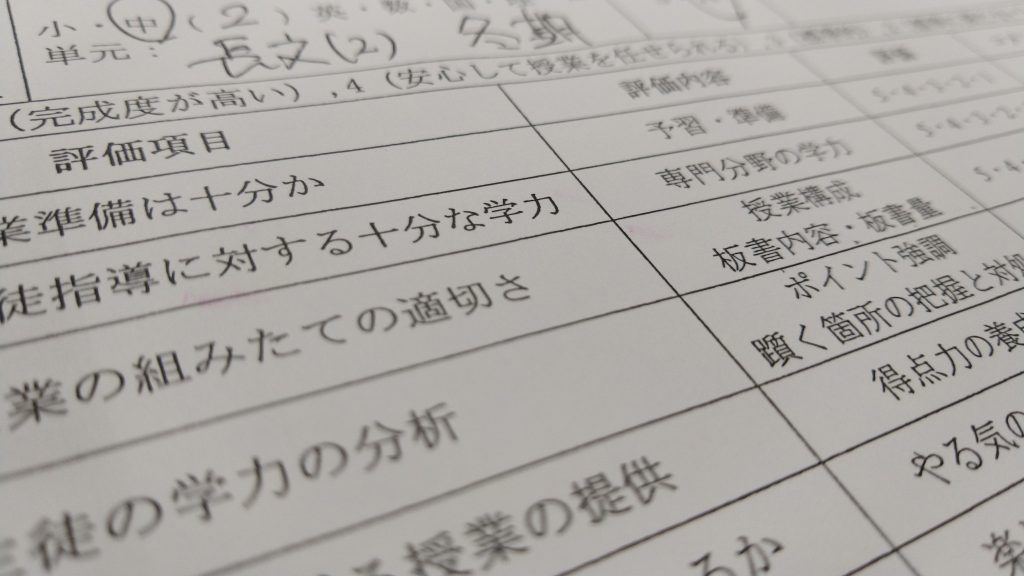 小・中(2) 英・数・国・
単元: 長文(2)
(完成度が高い),4(安心して授業を任せられる),
評価項目 評価内容 評価
業準備は十分か 予習・準備 5・4・3・2・1
徒指導に対する十分な学力 専門分野の学力 5・4・3・2・
業の組みたての適切さ 授業構成 5・4・
板書内容・板書量
ポイント強調
生徒の学力の分析 躓く箇所の把握と対処
る授業の提供 得点力の養成
るか やる気の